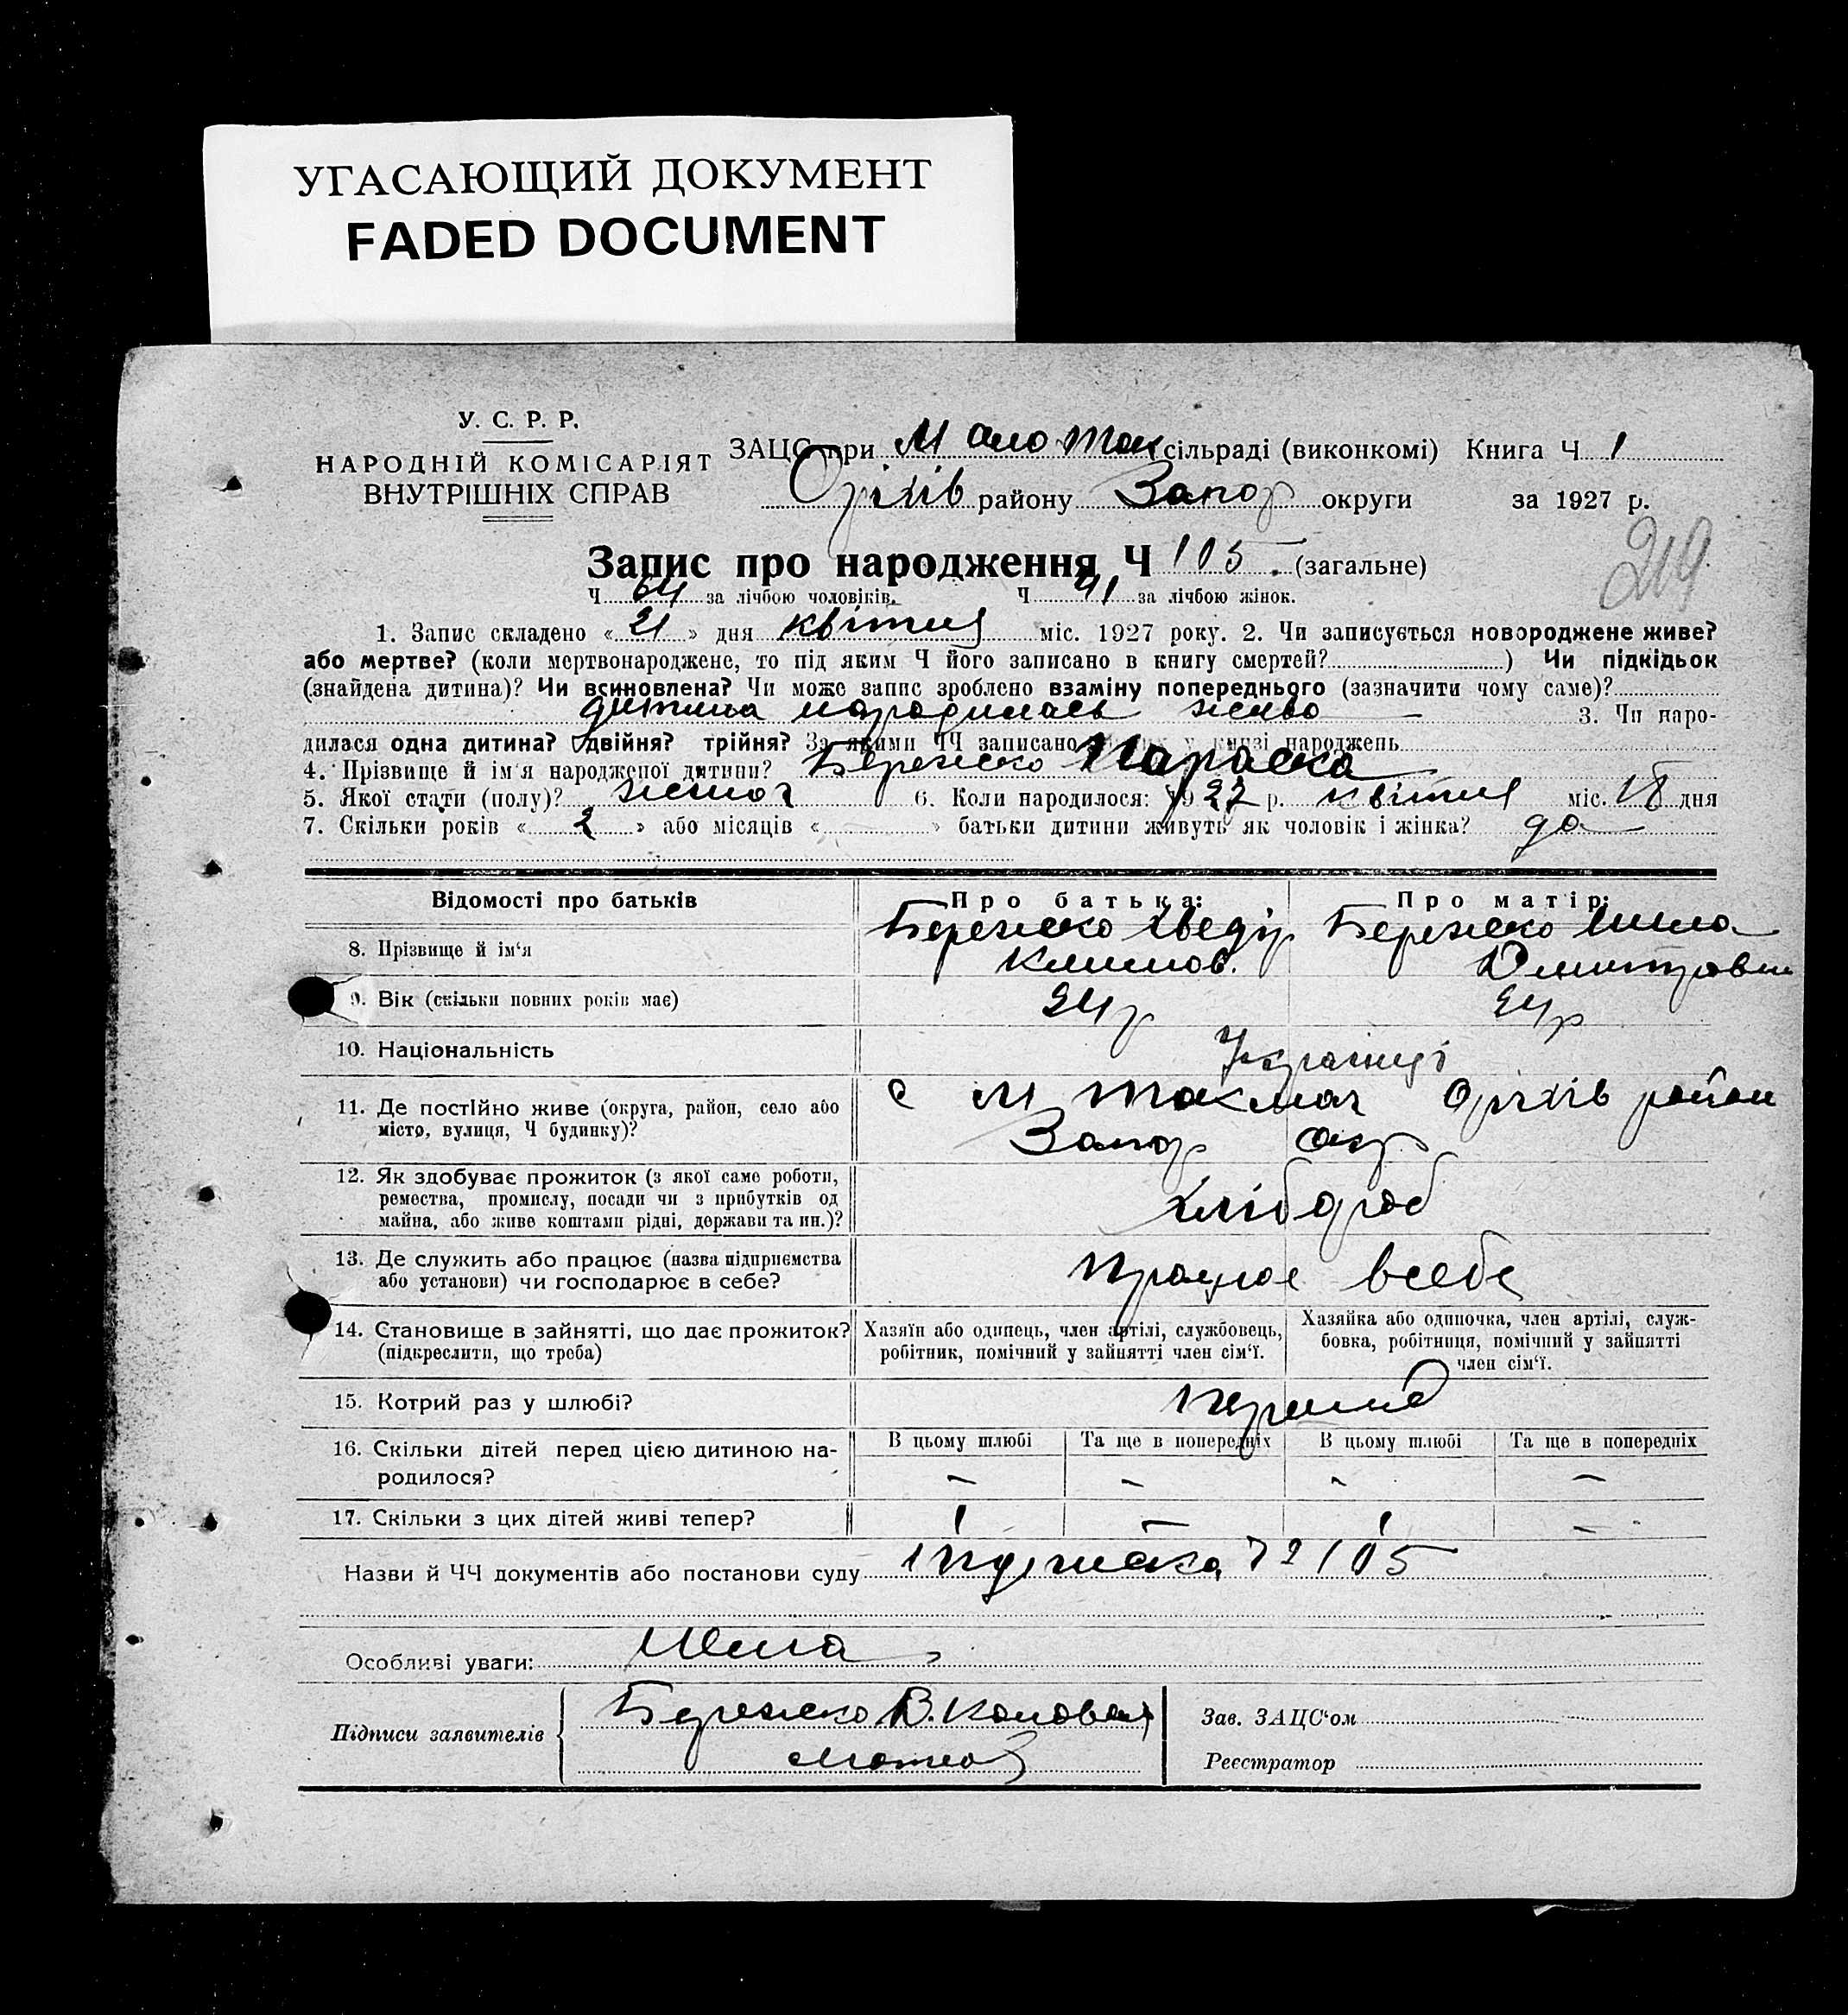 УГАСАЮЩИЙ ДОКУМЕНТ
FADED DOCUMENT
У. С. Р. Р.
НАРОДНІЙ КОМІСАРІЯТ
ВНУТРІШНІХ СПРАВ
ЗАЦС при Мало Ток сільраді (виконкомі) Книга Ч 1
Оріхів району Запор округи за 1927 р.
219
Запис про народження Ч 105. (загальне)
Ч 64 за лічбою чоловіків. Ч 41 за лічбою жінок.
1. Запис складено « 21 » дня квітня міс. 1927 року. 2. Чи записується новороджене живе?
або мертве? (коли мертвонароджене, то під яким Ч його записано в книгу смертей? ) Чи підкідьок
(знайдена дитина)? Чи всиновлена? Чи може запис зроблено взаміну попереднього (зазначити чому саме)?
дитина народилась жива 3. Чи наро-
дилася одна дитина? двійня? трійня? За якими ЧЧ записано у книзі народжень
4. Прізвище й ім'я народженої дитини? Бережко Параска
5. Якої стати (полу)? жіноч 6. Коли народилося: 1927 р. квітня міс. 18 дня
7. Скільки років « 2 » або місяців « » батьки дитини живуть як чоловік і жінка? да
Відомості про батьків Про батька: Про матір:
8. Прізвище й ім'я Бережко Хведір Бережко
Климов. Дмитровн
9. Вік (скільки повних років має) 24 р 24 р
10. Національність Українці
11. Де постійно живе (округа, район, село або
місто, вулиця, Ч будинку)?
с М Токмач Оріхів район
Запор окр
12. Як здобуває прожиток (з якої саме роботи,
ремества, промислу, посади чи з прибутків од
майна, або живе коштами рідні, держави та ин.)?
хлібороб
13. Де служить або працює (назва підприємства
або установи) чи господарює в себе?
працює всебе
14. Становище в зайнятті, що дає прожиток?
(підкреслити, що треба)
Хазяїн або одинець, член артілі, службовець,
робітник, помічний у зайнятті член сім'ї.
Хазяйка або одиночка, член артілі, служ-
бовка, робітниця, помічний у зайнятті
член сім'ї.
15. Котрий раз у шлюбі?
16. Скільки дітей перед цією дитиною на-
родилося?
В цьому шлюбі Та ще в попередніх В цьому шлюбі Та ще в попередніх
– – – –
17. Скільки з цих дітей живі тепер? 1 – 1 –
Назви й ЧЧ документів або постанови суду 105
Особливі уваги:
Підписи заявителів Бережко
Зав. ЗАЦС'ом
Реєстратор